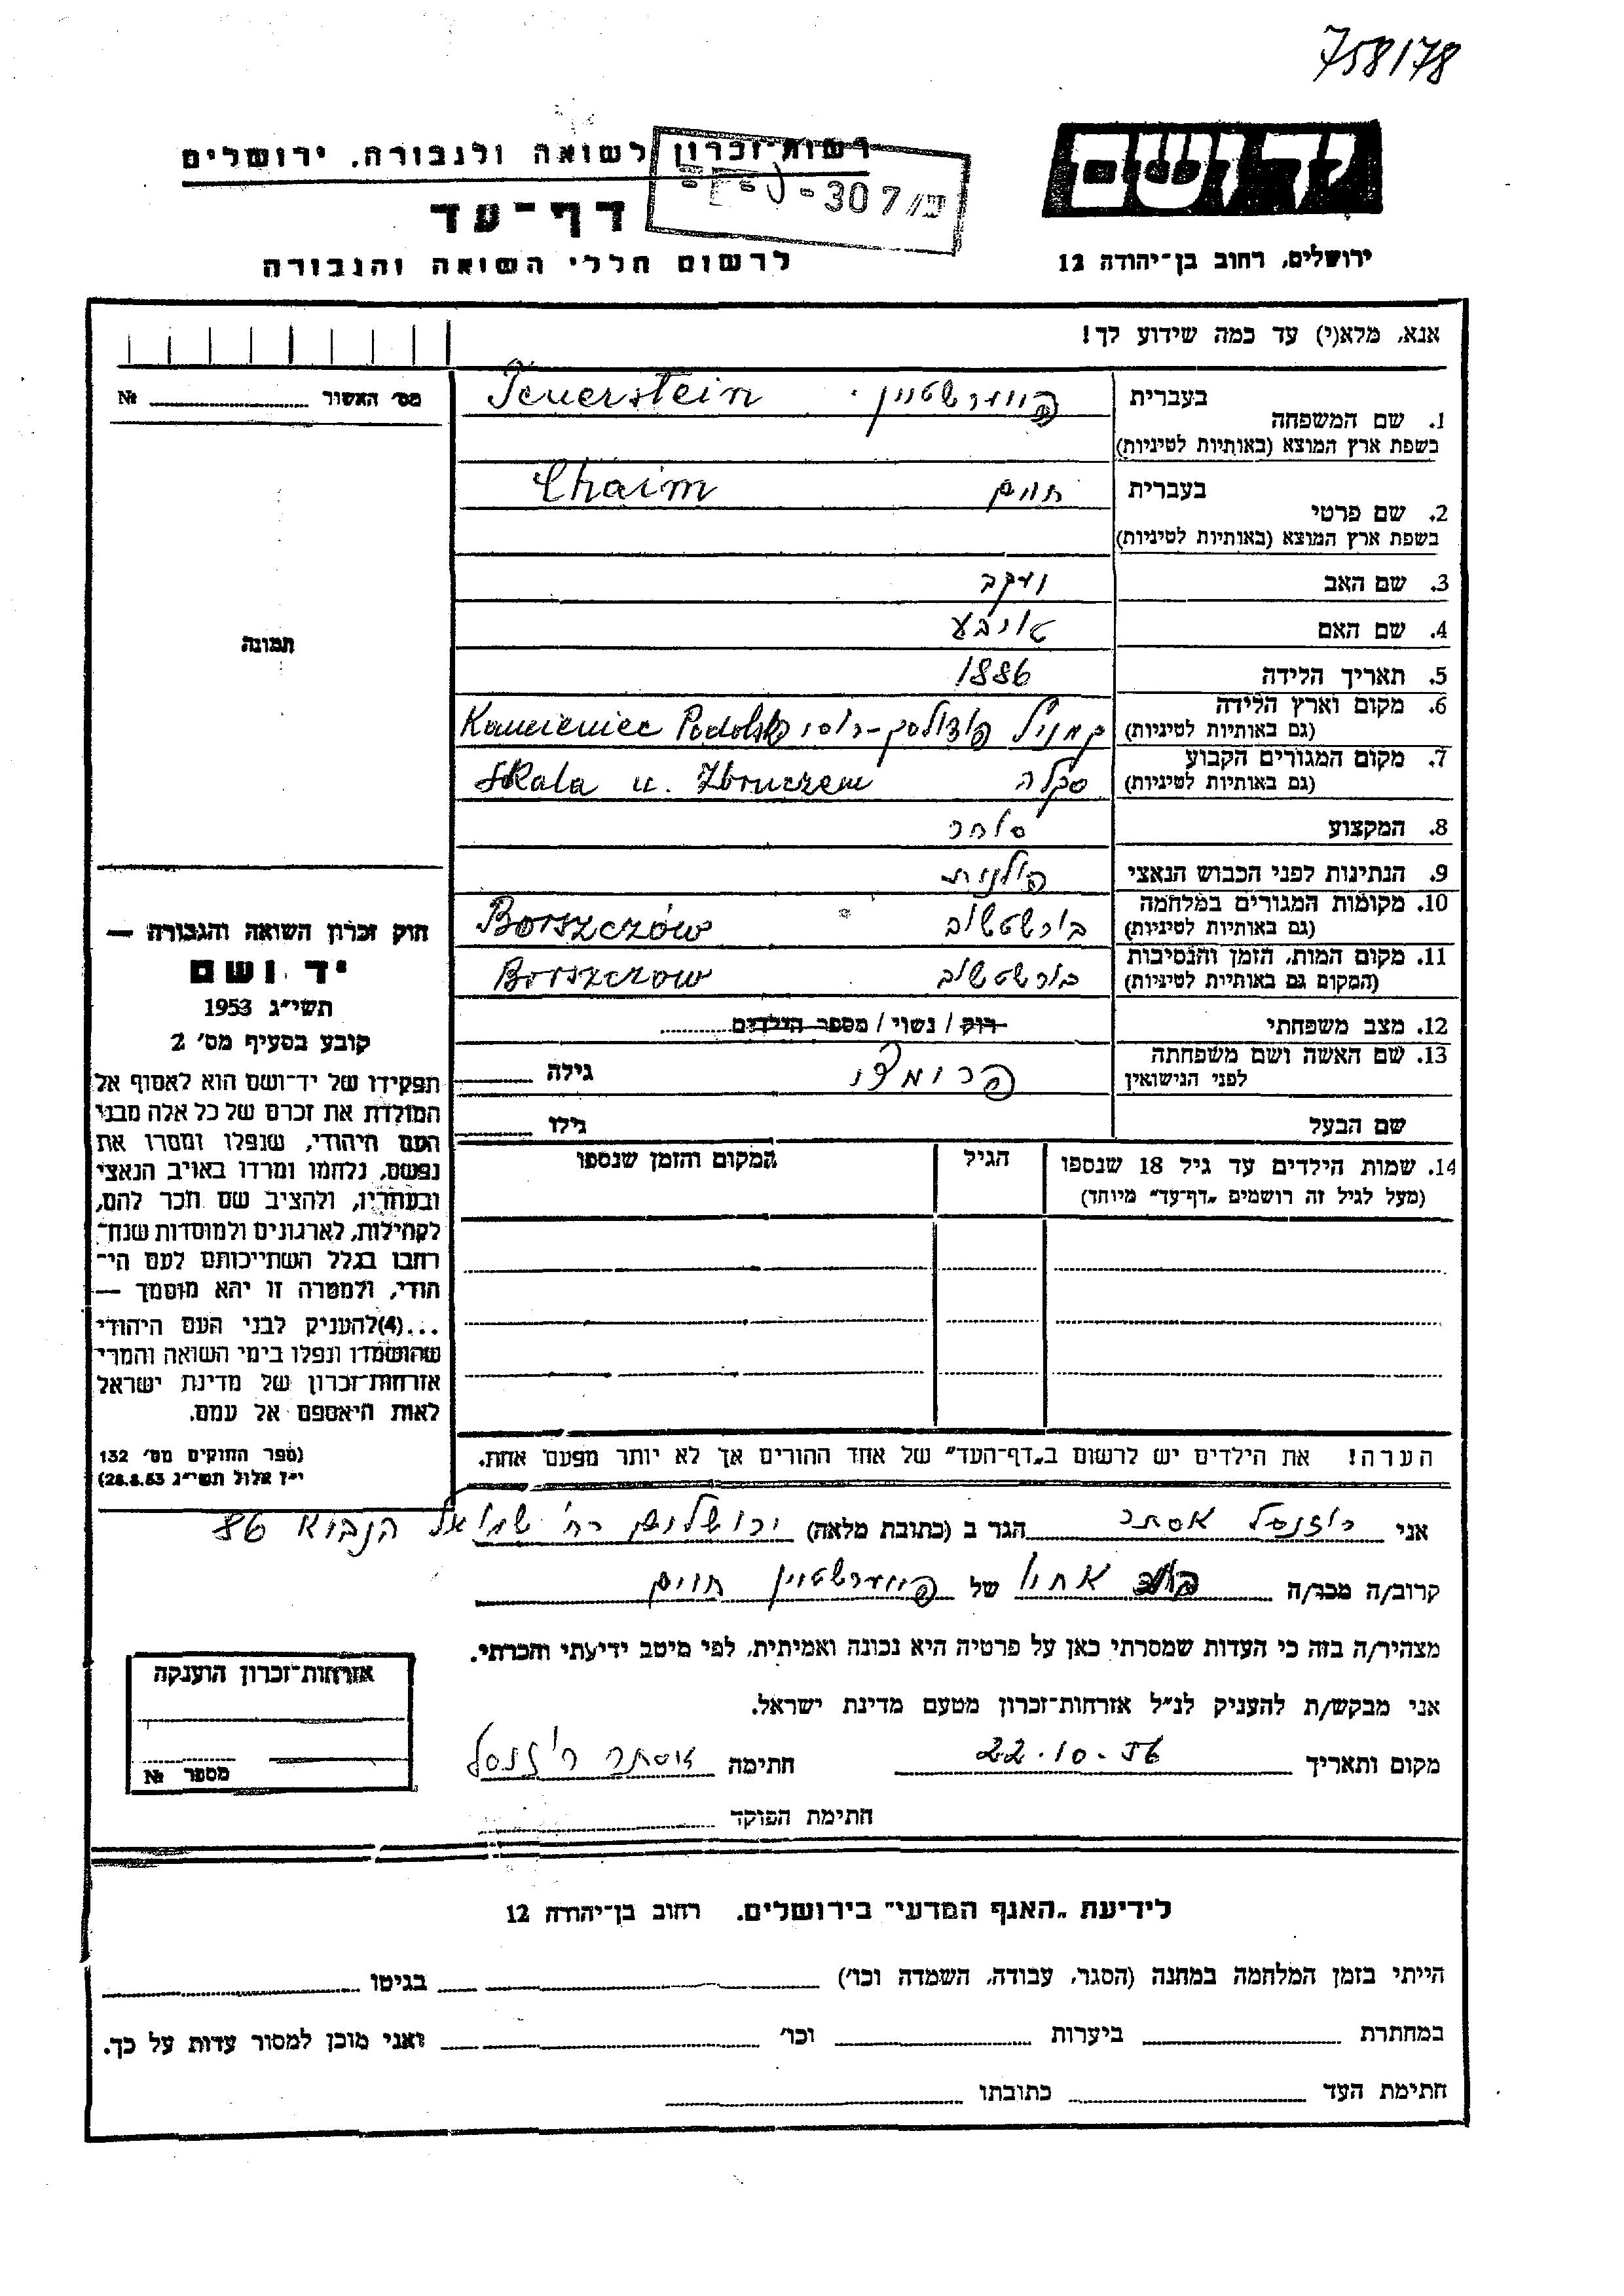 758178
רשות־זכרון לשואה ולגבורה, ירושלים
דף־עד
לרשום חללי השואה והגבורה
יד ושם
ירושלים, רחוב בן־יהודה 12
אנא, מלא(י) עד כמה שידוע לך!
מס׳ האשור № 
1. שם המשפחה
בעברית
פויערשטיין Feuerstein
בשפת ארץ המוצא (באותיות לטיניות)
2. שם פרטי
בעברית
חיים Chaim
בשפת ארץ המוצא (באותיות לטיניות)
3. שם האב יעקב
4. שם האם טויבע
5. תאריך הלידה 1886
6. מקום וארץ הלידה
(גם באותיות לטיניות)
פודולסק-רוסי Kamieniec Podolsk
7. מקום המגורים הקבוע
(גם באותיות לטיניות)
סקלה Skala n. Zbruczem
8. המקצוע סוחר
9. הנתינות לפני הכבוש הנאצי פולנית
10. מקומות המגורים במלחמה
(גם באותיות לטיניות)
בורשטשוב Borszczów
11. מקום המות, הזמן והנסיבות
(המקום גם באותיית לטיניות)
בורשטשוב Borszczow
12. מצב משפחתי רוק / נשוי / מספר הילדים
13. שם האשה ושם משפחתה
לפני הנישואין
פרומצי גילה
שם הבעל גילו
14. שמות הילדים עד גיל 18 שנספו
(מעל לגיל זה רושמים „דף־עד” מיוחד)
הגיל
המקום והזמן שנספו
תמונה
חוק זכרון השואה והגבורה —
יד ושם
תשי״ג 1953
קובע בסעיף מס׳ 2
תפקידו של יד־ושם הוא לאסוף אל
המולדת את זכרם של כל אלה מבני
העם היהודי, שנפלו ומסרו את
נפשם, נלחמו ומרדו באויב הנאצי
ובעוזריו, ולהציב שם וזכר להם,
לקהילות, לארגונים ולמוסדות שנח־
רבו בגלל השתייכותם לעם הי־
הודי, ולמטרה זו יהא מוסמך —
...(4)להעניק לבני העם היהודי
שהושמדו ונפלו בימי השואה והמרי
אזרחות־זכרון של מדינת ישראל
לאות היאספם אל עמם.
(ספר החוקים מס׳ 132
י״ז אלול תשי״ג 28.8.53)
הערה! את הילדים יש לרשום ב„דף־העד” של אחד ההורים אך לא יותר מפעם אחת.
אני רוזנסל אסתר הגר ב (כתובת מלאה) ירושלים רח׳ שמואל הנבוא 86
קרוב/ה מכר/ה בת אחיו של פויערשטיין חיים
מצהיר/ה בזה כי העדות שמסרתי כאן על פרטיה היא נכונה ואמיתית, לפי מיטב ידיעתי והכרתי.
אני מבקש/ת להעניק לנ״ל אזרחות־זכרון מטעם מדינת ישראל.
מקום ותאריך 22.10.56 חתימה אסתר רוזנסל
חתימת הפוקד
אזרחות־זכרון הוענקה
מספר №
לידיעת „האגף המדעי” בירושלים. רחוב בן־יהודה 12
הייתי בזמן המלחמה במחנה (הסגר, עבודה, השמדה וכו׳) בגיטו
במחתרת ביערות וכו׳ ואני מוכן למסור עדות על כך.
חתימת העד כתובתו